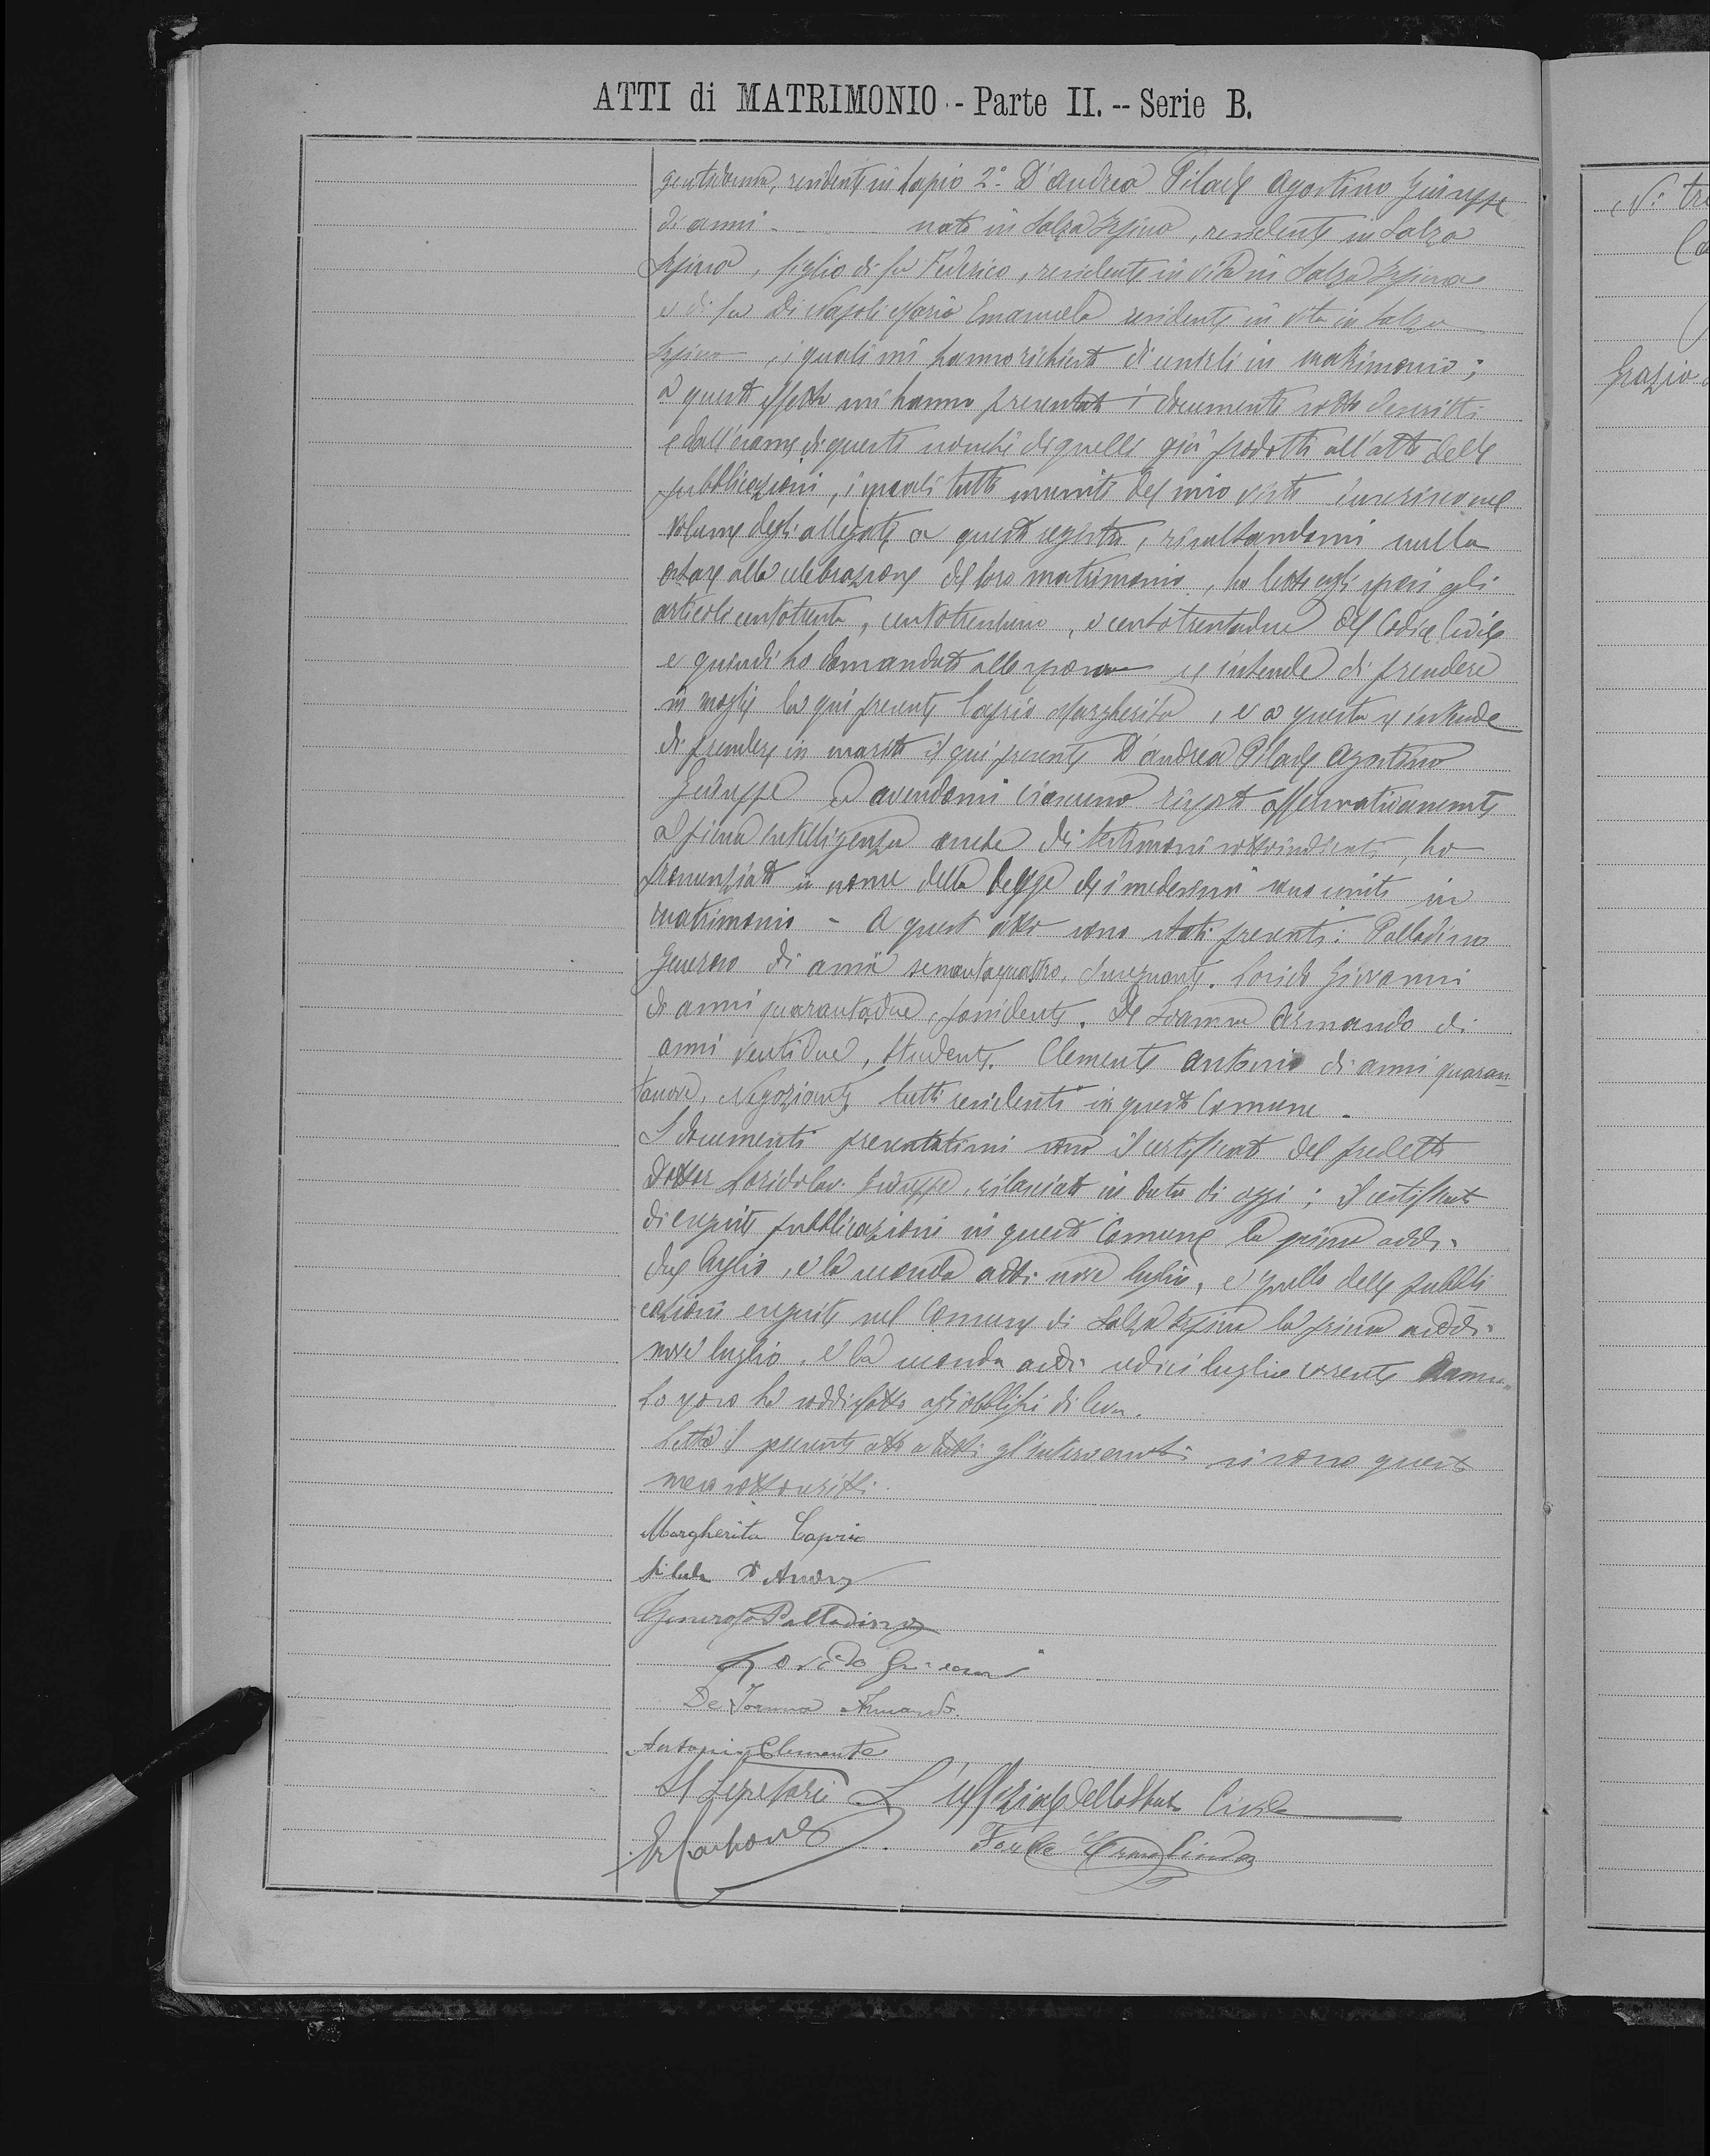 ATTI di MATRIMONIO -- Parte II. -- Serie B.
gentildonna, residente in Lapio 2° D'Andrea Pilade Agostino Giuseppe
di anni - nato in Salza Irpina, residente in Salza
Irpina, figlio di fu Federico, residente in vita in Salza Irpina
e di fu Di Napoli Maria Emanuela residente in vita in Salza
Irpina, i quali mi hanno richiesto di unirli in matrimonio;
a questo effetto mi hanno presentato i documenti sotto descritti
e dall'esame di questi nonché di quelli già prodotti all'atto delle
pubblicazioni, i quali tutti muniti del mio visto inserisco nel
volume degli allegati a questo registro, risultandomi nulla
ostare alla celebrazione del loro matrimonio, ho letto agli sposi gli
articoli centotrenta, centotrentuno, e centotrentadue del Codice Civile
e quindi ho domandato allo sposo se intende di prendere
in moglie la qui presente Caprio Margherita, e a questa se intende
di prendere in marito il qui presente D'Andrea Pilade Agostino
Giuseppe ed avendomi ciascuno risposto affermativamente
a piena intelligenza anche dei testimoni sottoindicati, ho
pronunziato in nome della legge che i medesimi sono uniti in
matrimonio - A quest'atto sono stati presenti: Palladino
Generoso di anni sessantaquattro, Insegnante. Lorido Giovanni
di anni quarantadue, possidente. De Ioanna Armando di
anni ventidue, studente. Clemente Antonio di anni quaran
tanove, Negoziante, tutti residenti in questo Comune.
I documenti presentatimi sono il certificato del predetto
Dottor Lorido Cav. Giuseppe, rilasciato in data di oggi; il certificato
di eseguite pubblicazioni in questo Comune la prima addì
due luglio, e la seconda addì nove luglio, e quello delle pubbli
cazioni eseguite nel Comune di Salza Irpina la prima addì
nove luglio, e la seconda addì sedici luglio corrente anno.
Lo sposo ha soddisfatto agli obblighi di leva.
Letto il presente atto a tutti gl'intervenuti si sono questi
meco sottoscritti.
Margherita Caprio
Pilade D'Andrea
Generoso Palladino
Lorido Giovanni
De Ioanna Armando
Antonio Clemente
Il Segretario L'uffiziale dello Stato Civile